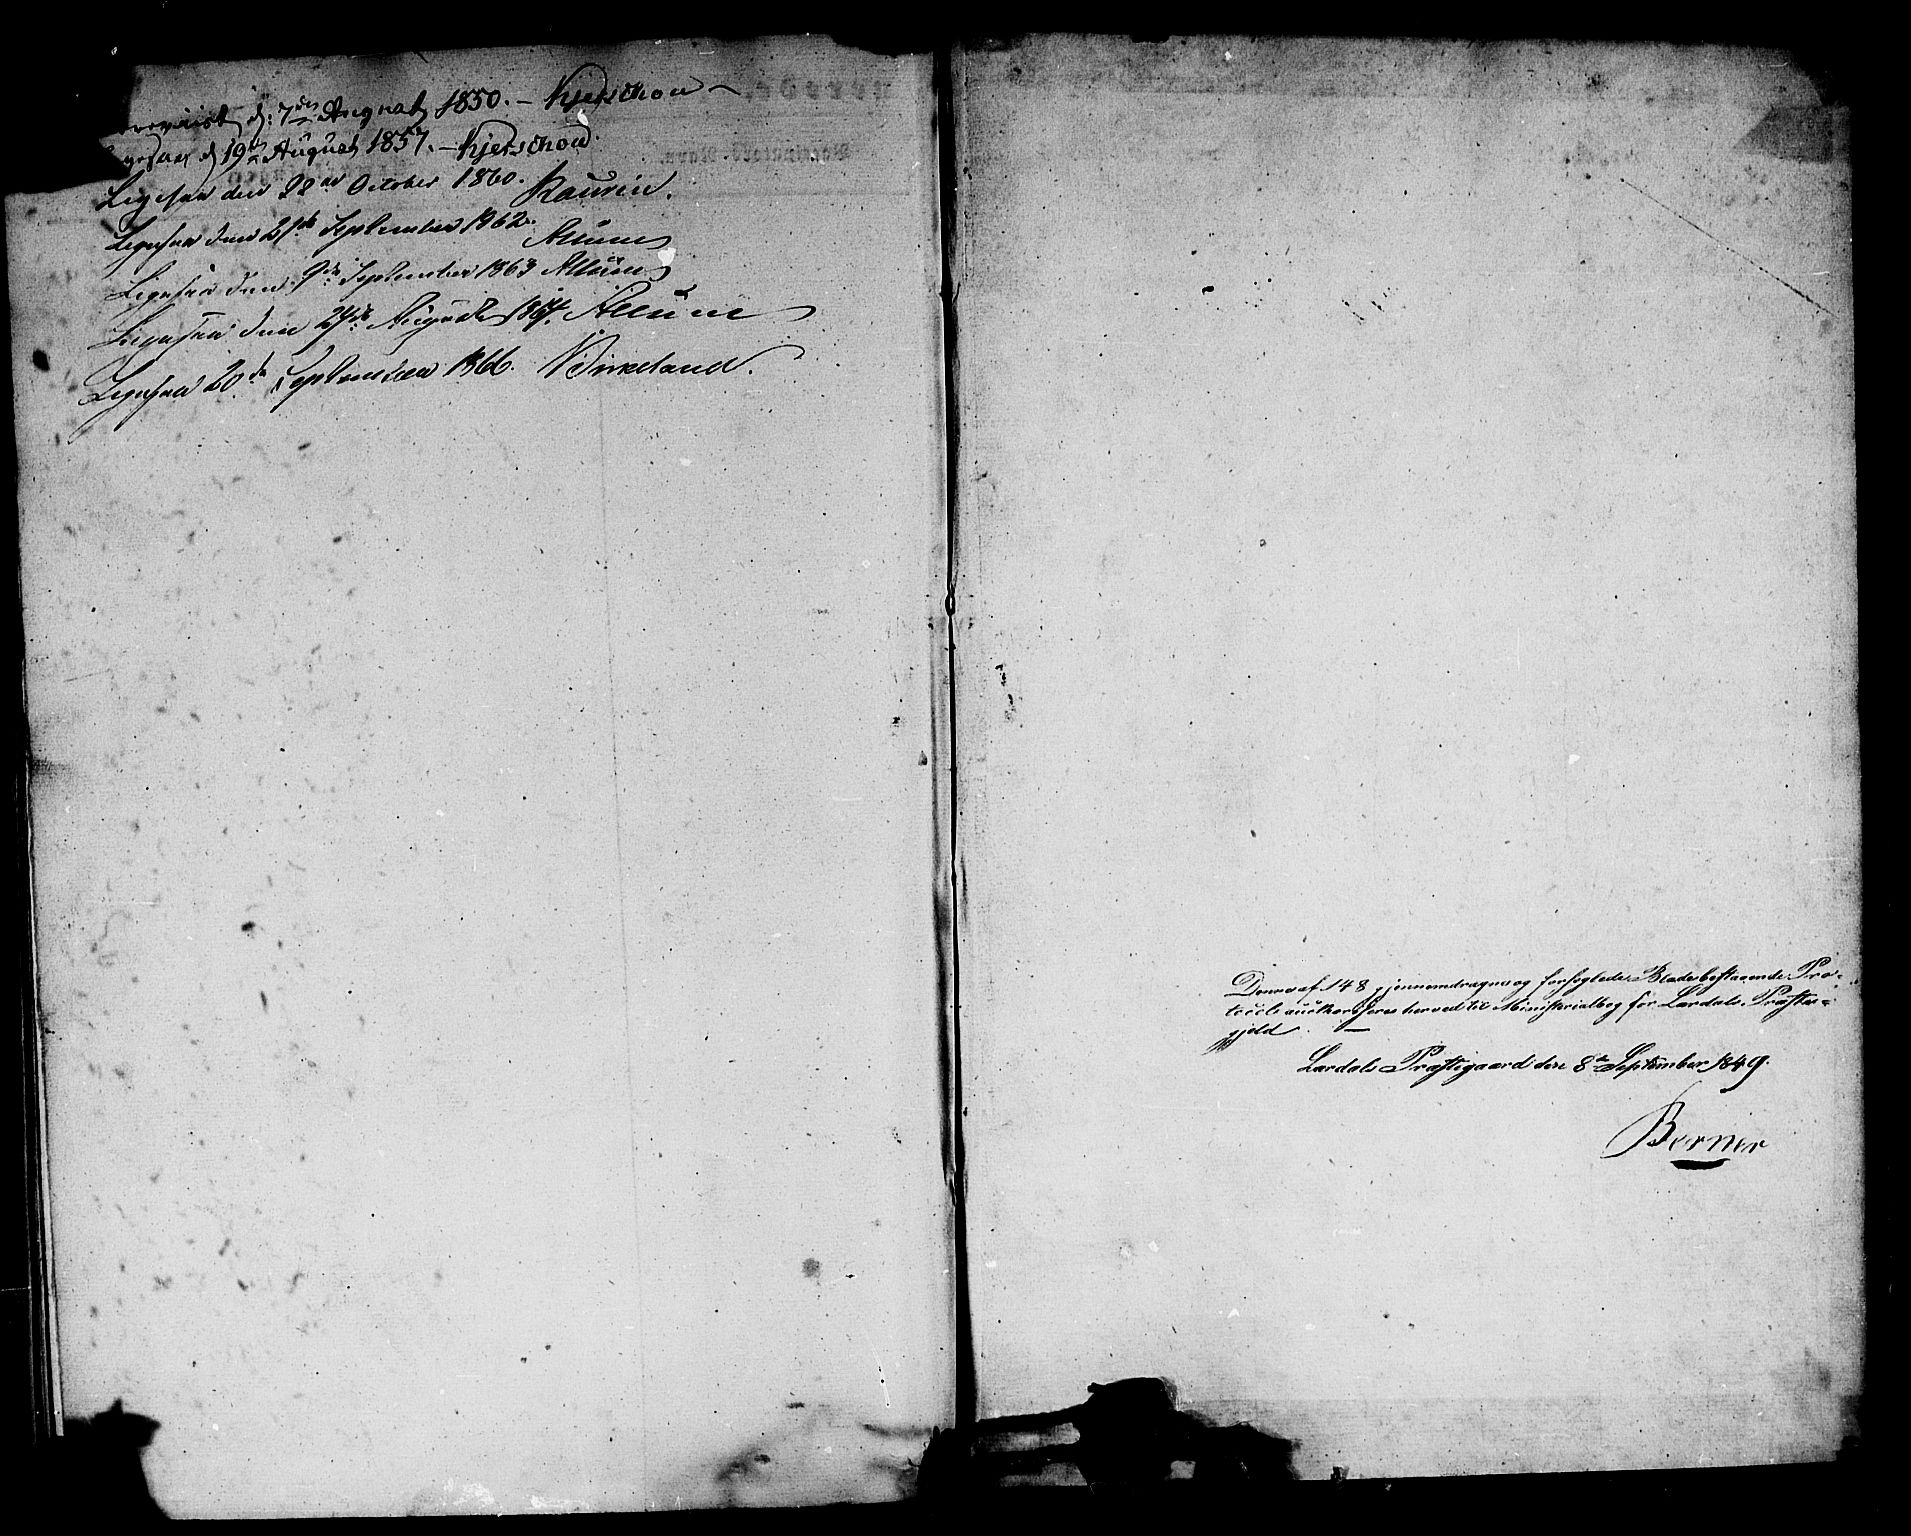 foreviist d: 7de August 1850. – Kjerschow –
Ligesaa d 19de August 1857. – Kjerschow
Ligesaa den 28de October 1860. Kaurin.
Ligesaa den 21de September 1862.
Ligesaa den 9de September 1863
Ligesaa den 24de August 1864.
Ligesaa 20de September 1866. Birkeland.
Denne af 148 gjennemdragne og forseglede Blade bestaaende Pro-
tocoll authoriseres herved til Ministerialbog for Lardals Præste-
gjeld. —
Lardals Præstegaard den 8de September 1849.
Berner